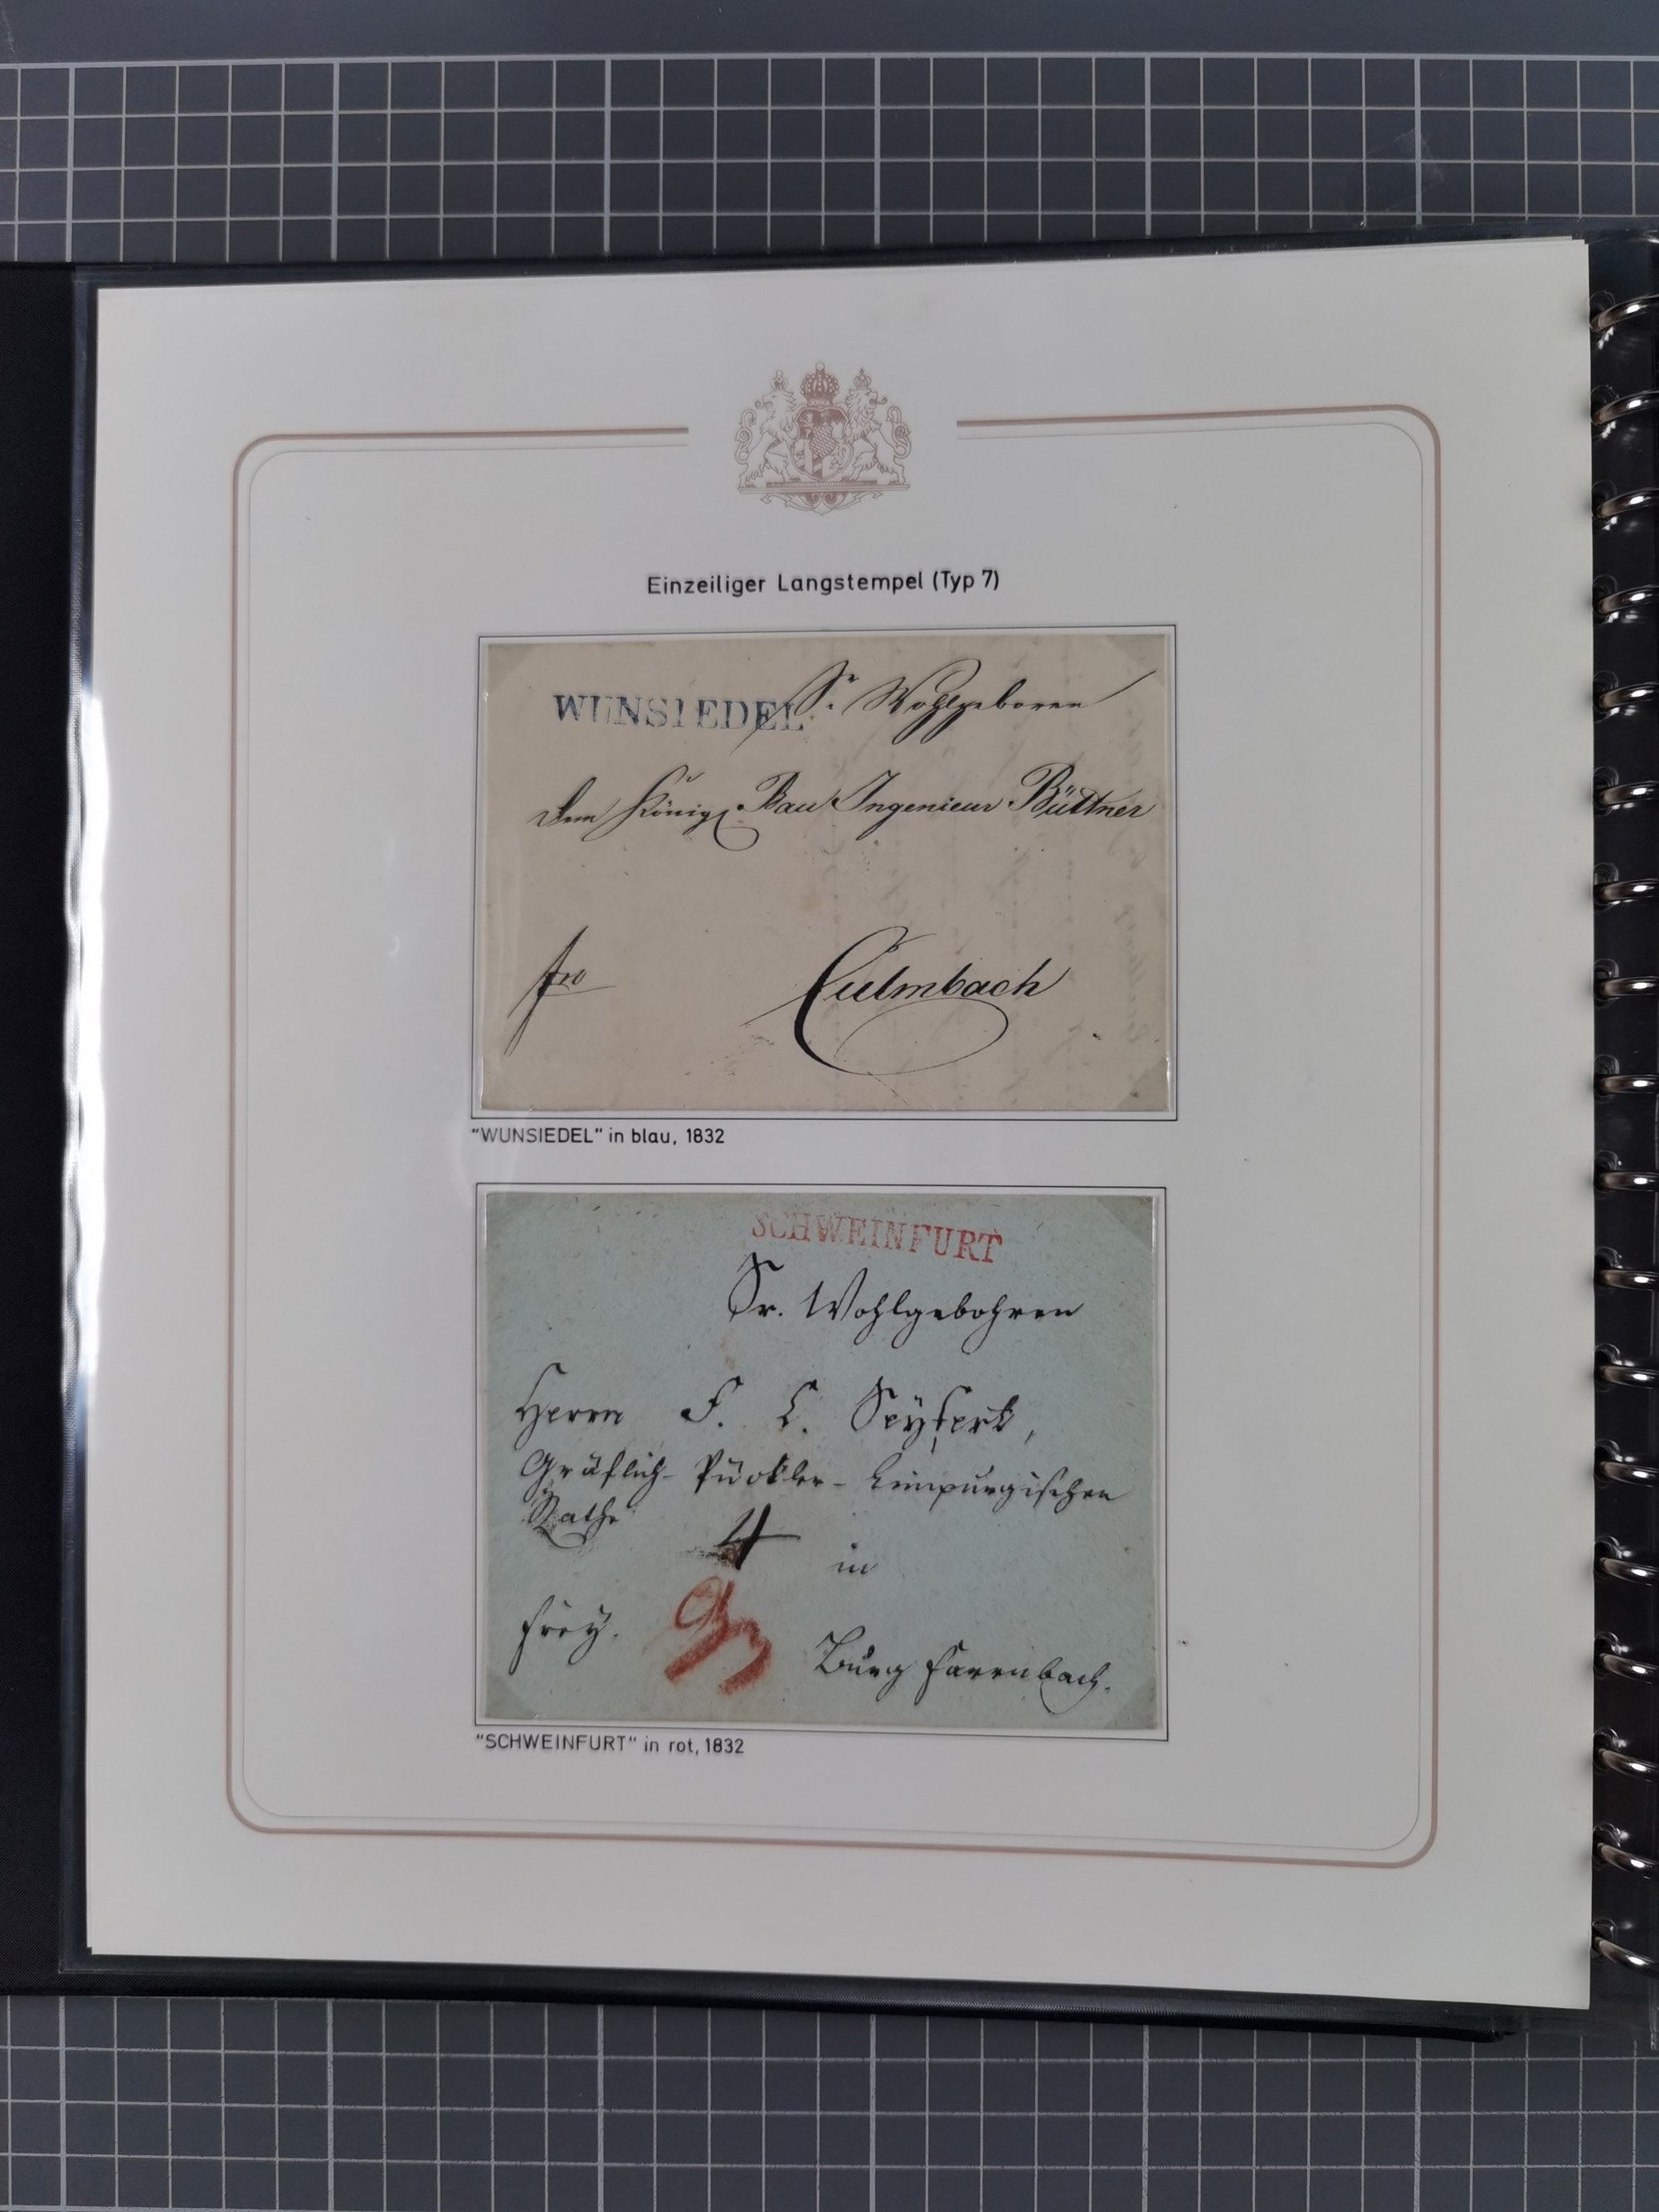 Einzeiliger Langstempel (Typ 7)
WUNSIEDEL
Sr. Wohlgeboren
Dem Königl Bau Ingenieur Büttner
fro
Culmbach
"WUNSIEDEL" in blau, 1832
SCHWEINFURT
Sr. Wohlgebohren
Herrn F. L. Seyfert,
Gräflich- Pückler- Limpurgischen
Rathe
4
in
frey.
Burg Farrnbach.
"SCHWEINFURT" in rot, 1832